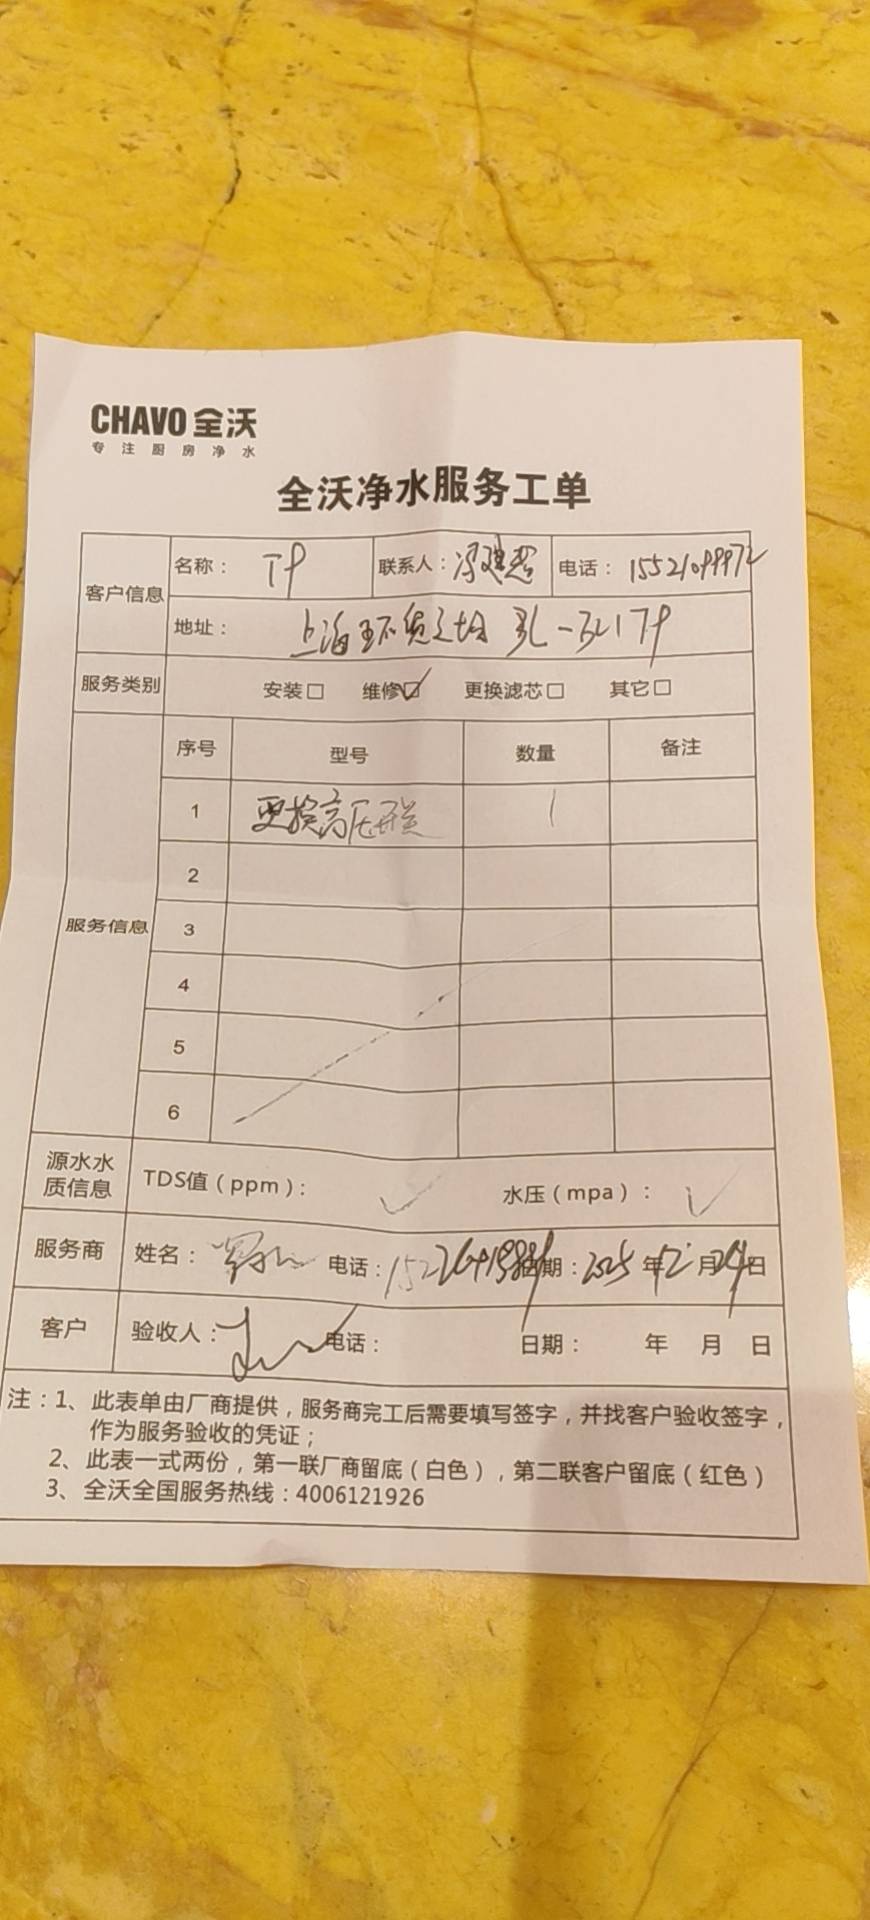 CHAVO 全沃
专注厨房净水
全沃净水服务工单
客户信息
名称： 联系人： 电话：
地址： 上海环
服务类别 安装□ 维修☑ 更换滤芯□ 其它□
服务信息 序号 型号 数量 备注
1 更换高压开关 1
2
3
4
5
6
源水水质信息 TDS值（ppm）：✓ 水压（mpa）：✓
服务商 姓名： 电话： 日期：2025年12月24日
客户 验收人： 电话： 日期： 年 月 日
注：1、此表单由厂商提供，服务商完工后需要填写签字，并找客户验收签字，
作为服务验收的凭证；
2、此表一式两份，第一联厂商留底（白色），第二联客户留底（红色）
3、全沃全国服务热线：4006121926